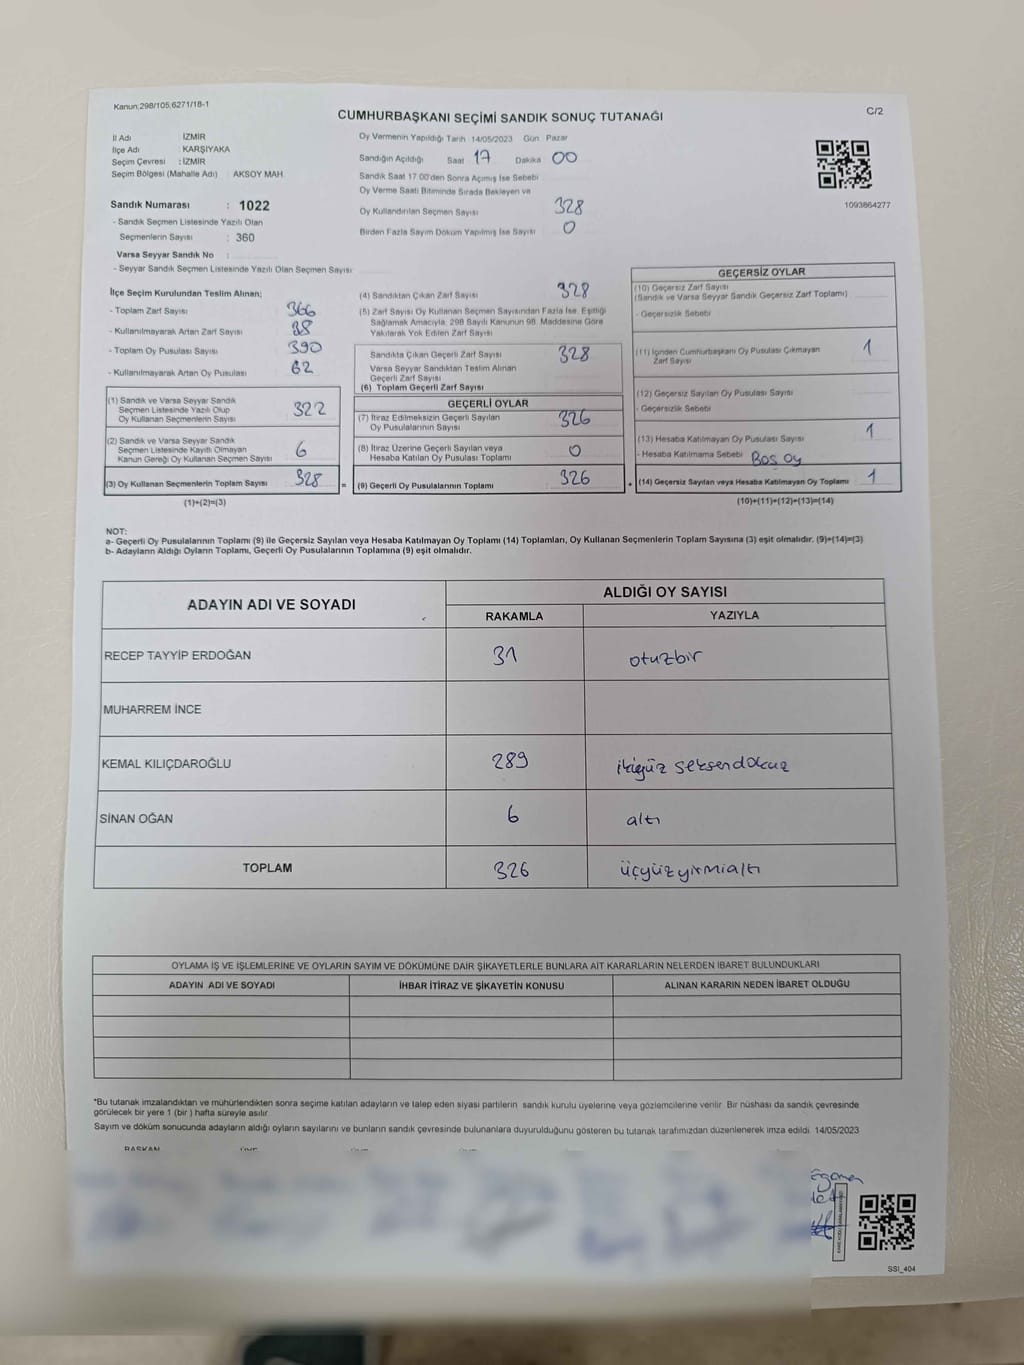 Kanun;298/105;6271/18-1
C/2
CUMHURBAŞKANI SEÇİMİ SANDIK SONUÇ TUTANAĞI
İl Adı : İZMİR
İlçe Adı : KARŞIYAKA
Seçim Çevresi : İZMİR
Seçim Bölgesi (Mahalle Adı) : AKSOY MAH.
Sandık Numarası : 1022
- Sandık Seçmen Listesinde Yazılı Olan
Seçmenlerin Sayısı : 360
Varsa Seyyar Sandık No :
- Seyyar Sandık Seçmen Listesinde Yazılı Olan Seçmen Sayısı
Oy Vermenin Yapıldığı Tarih 14/05/2023 Gün Pazar
Sandığın Açıldığı Saat 17 Dakika 00
Sandık Saat 17.00'den Sonra Açımış İse Sebebi
Oy Verme Saati Bitiminde Sırada Bekleyen ve
Oy Kullandırılan Seçmen Sayısı 328
Birden Fazla Sayım Döküm Yapılmış İse Sayısı 0
1093864277
İlçe Seçim Kurulundan Teslim Alınan;
- Toplam Zarf Sayısı 366
- Kullanılmayarak Artan Zarf Sayısı 38
- Toplam Oy Pusulası Sayısı 390
- Kullanılmayarak Artan Oy Pusulası 62
(1) Sandık ve Varsa Seyyar Sandık
Seçmen Listesinde Yazılı Olup
Oy Kullanan Seçmenlerin Sayısı 322
(2) Sandık ve Varsa Seyyar Sandık
Seçmen Listesinde Kayıtlı Olmayan
Kanun Gereği Oy Kullanan Seçmen Sayısı 6
(3) Oy Kullanan Seçmenlerin Toplam Sayısı 328 =
(1)+(2)=(3)
(4) Sandıktan Çıkan Zarf Sayısı 328
(5) Zarf Sayısı Oy Kullanan Seçmen Sayısından Fazla İse, Eşitliği
Sağlamak Amacıyla, 298 Sayılı Kanunun 98. Maddesine Göre
Yakılarak Yok Edilen Zarf Sayısı
Sandıkta Çıkan Geçerli Zarf Sayısı 328
Varsa Seyyar Sandıktan Teslim Alınan
Geçerli Zarf Sayısı
(6) Toplam Geçerli Zarf Sayısı
GEÇERLİ OYLAR
(7) İtiraz Edilmeksizin Geçerli Sayılan
Oy Pusulalarının Sayısı 326
(8) İtiraz Üzerine Geçerli Sayılan veya
Hesaba Katılan Oy Pusulası Toplamı 0
(9) Geçerli Oy Pusulalarının Toplamı 326 +
GEÇERSİZ OYLAR
(10) Geçersiz Zarf Sayısı
(Sandık ve Varsa Seyyar Sandık Geçersiz Zarf Toplamı)
- Geçersizlik Sebebi
(11) İçinden Cumhurbaşkanı Oy Pusulası Çıkmayan
Zarf Sayısı 1
(12) Geçersiz Sayılan Oy Pusulası Sayısı
- Geçersizlik Sebebi
(13) Hesaba Katılmayan Oy Pusulası Sayısı 1
- Hesaba Katılmama Sebebi Boş oy
(14) Geçersiz Sayılan veya Hesaba Katılmayan Oy Toplamı 1
(10)+(11)+(12)+(13)=(14)
NOT:
a- Geçerli Oy Pusulalarının Toplamı (9) ile Geçersiz Sayılan veya Hesaba Katılmayan Oy Toplamı (14) Toplamları, Oy Kullanan Seçmenlerin Toplam Sayısına (3) eşit olmalıdır. (9)+(14)=(3)
b- Adayların Aldığı Oyların Toplamı, Geçerli Oy Pusulalarının Toplamına (9) eşit olmalıdır.
ADAYIN ADI VE SOYADI
ALDIĞI OY SAYISI
RAKAMLA YAZIYLA
RECEP TAYYİP ERDOĞAN 31 otuzbir
MUHARREM İNCE
KEMAL KILIÇDAROĞLU 289 ikiyüz seksendokuz
SİNAN OĞAN 6 altı
TOPLAM 326 üçyüzyirmialtı
OYLAMA İŞ VE İŞLEMLERİNE VE OYLARIN SAYIM VE DÖKÜMÜNE DAİR ŞİKAYETLERLE BUNLARA AİT KARARLARIN NELERDEN İBARET BULUNDUKLARI
ADAYIN ADI VE SOYADI İHBAR İTİRAZ VE ŞİKAYETİN KONUSU ALINAN KARARIN NEDEN İBARET OLDUĞU
*Bu tutanak imzalandıktan ve mühürlendikten sonra seçime katılan adayların ve talep eden siyasi partilerin sandık kurulu üyelerine veya gözlemcilerine verilir. Bir nüshası da sandık çevresinde
görülecek bir yere 1 (bir ) hafta süreyle asılır.
Sayım ve döküm sonucunda adayların aldığı oyların sayılarını ve bunların sandık çevresinde bulunanlara duyurulduğunu gösteren bu tutanak tarafımızdan düzenlenerek imza edildi. 14/05/2023
BAŞKAN
SSI_404